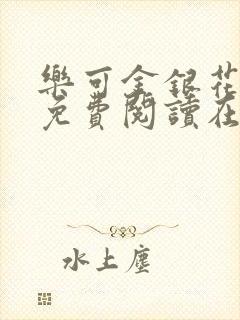 樂可金銀花
免費閱讀在
水上塵